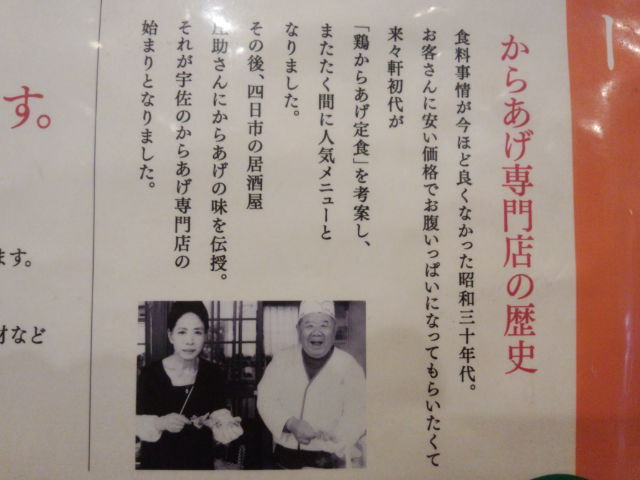 からあげ専門店の歴史
食料事情が今ほど良くなかった昭和三十年代。
お客さんに安い価格でお腹いっぱいになってもらいたくて
来々軒初代が
「鶏からあげ定食」を考案し、
またたく間に人気メニューと
なりました。
その後、四日市の居酒屋
庄助さんにからあげの味を伝授。
それが宇佐のからあげ専門店の
始まりとなりました。
す。
ます。
材など